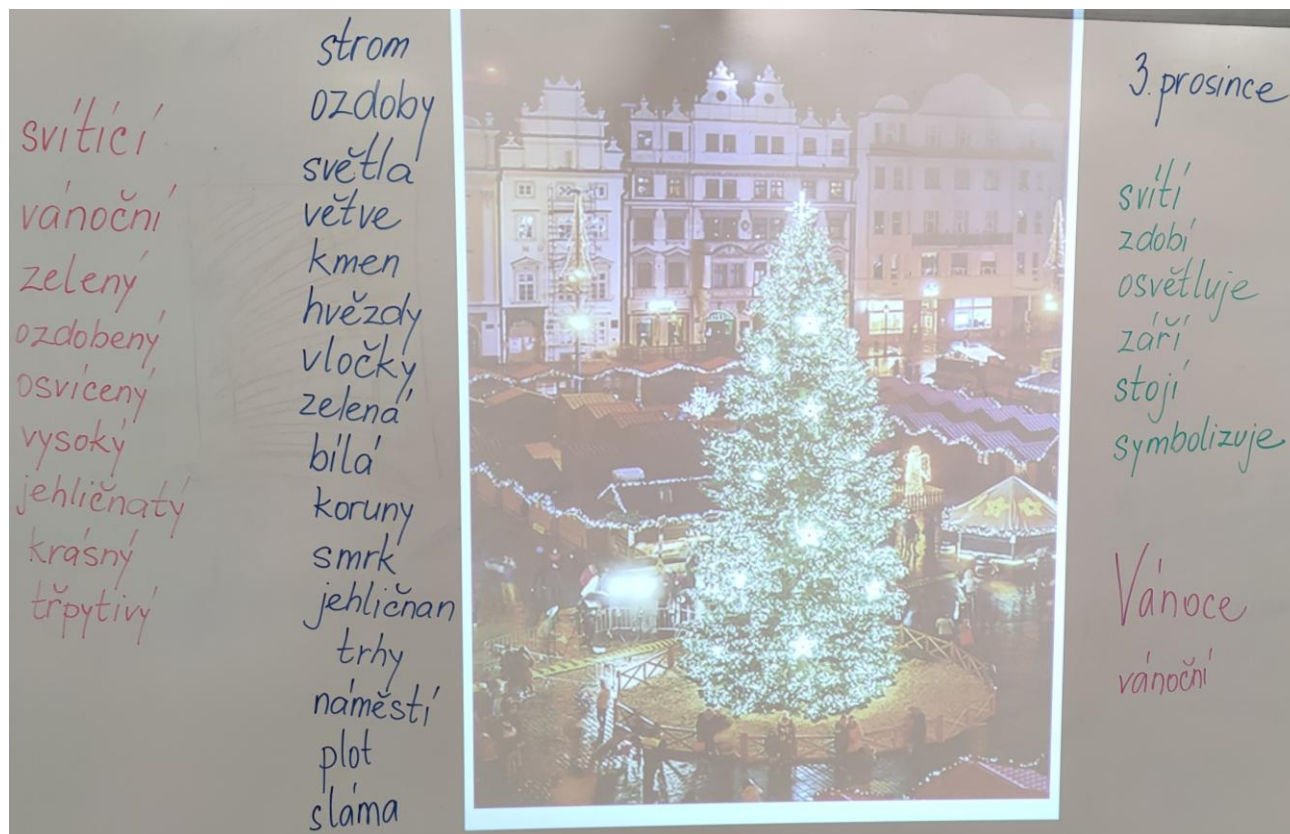 svítící
vánoční
zelený
ozdobený
osvícený
vysoký
jehličnatý
krásný
třpytivý
strom
ozdoby
světla
větve
kmen
hvězdy
vločky
zelená
bílá
koruny
smrk
jehličnan
trhy
náměstí
plot
sláma
3. prosince
svítí
zdobí
osvětluje
září
stojí
symbolizuje
Vánoce
vánoční